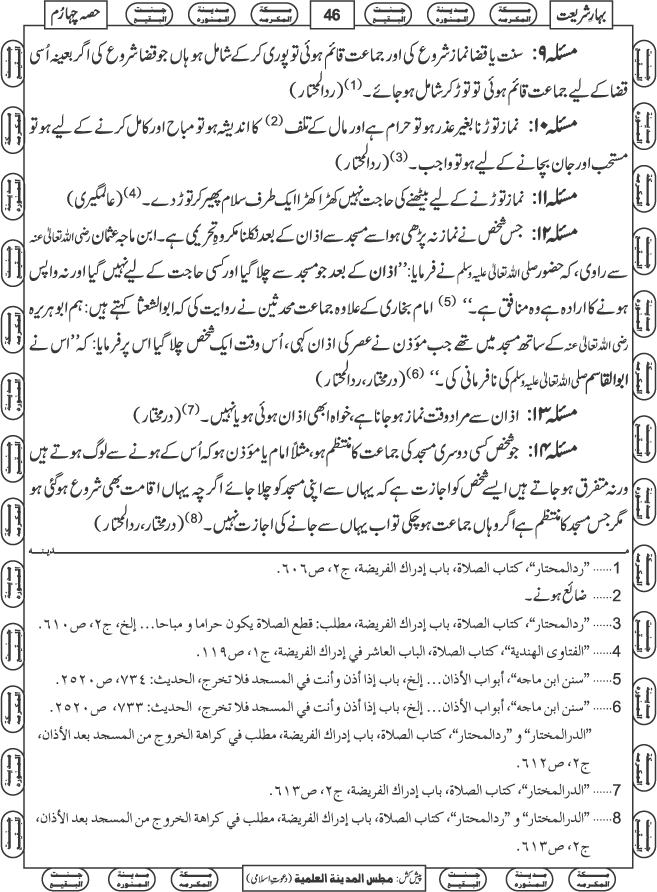 بہارِ شریعت 46 حصہ چہارم
مسئلہ ۹: سنت یا قضا نماز شروع کی اور جماعت قائم ہوئی تو پوری کر کے شامل ہو ہاں جو قضا شروع کی اگر بعینہٖ اُسی
قضا کے لیے جماعت قائم ہوئی تو توڑ کر شامل ہو جائے۔(1) (ردالمحتار)
مسئلہ ۱۰: نماز توڑنا بغیر عذر ہو تو حرام ہے اور مال کے تلف (2) کا اندیشہ ہو تو مباح اور کامل کرنے کے لیے ہو تو
مستحب اور جان بچانے کے لیے ہو تو واجب۔(3) (ردالمحتار)
مسئلہ ۱۱: نماز توڑنے کے لیے بیٹھنے کی حاجت نہیں کھڑا کھڑا ایک طرف سلام پھیر کر توڑ دے۔(4) (عالمگیری)
مسئلہ ۱۲: جس شخص نے نماز نہ پڑھی ہو اسے مسجد سے اذان کے بعد نکلنا مکروہ تحریمی ہے۔ ابن ماجہ عثمان رضی اللہ تعالیٰ عنہ
سے راوی، کہ حضور صلی اللہ تعالیٰ علیہ وسلم نے فرمایا: ’’اذان کے بعد جو مسجد سے چلا گیا اور کسی حاجت کے لیے نہیں گیا اور نہ واپس
ہونے کا ارادہ ہے وہ منافق ہے۔‘‘ (5) امام بخاری کے علاوہ جماعت محدثین نے روایت کی کہ ابوالشعثا کہتے ہیں: ہم ابوہریرہ
رضی اللہ تعالیٰ عنہ کے ساتھ مسجد میں تھے جب مؤذن نے عصر کی اذان کہی، اُس وقت ایک شخص چلا گیا اس پر فرمایا: کہ ’’اس نے
ابوالقاسم صلی اللہ تعالیٰ علیہ وسلم کی نافرمانی کی۔‘‘ (6) (درمختار، ردالمحتار)
مسئلہ ۱۳: اذان سے مراد وقت نماز ہو جانا ہے، خواہ ابھی اذان ہوئی ہو یا نہیں۔(7) (درمختار)
مسئلہ ۱۴: جو شخص کسی دوسری مسجد کی جماعت کا منتظم ہو، مثلاً امام یا مؤذن ہو کہ اُس کے ہونے سے لوگ ہوتے ہیں
ورنہ متفرق ہو جاتے ہیں ایسے شخص کو اجازت ہے کہ یہاں سے اپنی مسجد کو چلا جائے اگرچہ یہاں اقامت بھی شروع ہوگئی ہو
مگر جس مسجد کا منتظم ہے اگر وہاں جماعت ہو چکی تو اب یہاں سے جانے کی اجازت نہیں۔(8) (درمختار، ردالمحتار)
مـــدینـــہ
1...... ’’ردالمحتار‘‘، كتاب الصلاة، باب إدراك الفريضة، ج۲، ص۶۰۶.
2...... ضائع ہونے۔
3...... ’’ردالمحتار‘‘، كتاب الصلاة، باب إدراك الفريضة، مطلب: قطع الصلاة يكون حراما و مباحا... إلخ، ج۲، ص۶۱۰.
4...... ’’الفتاوى الهندية‘‘، كتاب الصلاة، الباب العاشر في إدراك الفريضة، ج۱، ص۱۱۹.
5...... ’’سنن ابن ماجه‘‘، أبواب الأذان... إلخ، باب إذا أذن وأنت في المسجد فلا تخرج، الحديث: ۷۳۴، ص۲۵۲۰.
6...... ’’سنن ابن ماجه‘‘، أبواب الأذان... إلخ، باب إذا أذن وأنت في المسجد فلا تخرج، الحديث: ۷۳۳، ص۲۵۲۰.
’’الدرالمختار‘‘ و ’’ردالمحتار‘‘، كتاب الصلاة، باب إدراك الفريضة، مطلب في كراهة الخروج من المسجد بعد الأذان،
ج۲، ص۶۱۲.
7...... ’’الدرالمختار‘‘، كتاب الصلاة، باب إدراك الفريضة، ج۲، ص۶۱۳.
8...... ’’الدرالمختار‘‘ و ’’ردالمحتار‘‘، كتاب الصلاة، باب إدراك الفريضة، مطلب في كراهة الخروج من المسجد بعد الأذان،
ج۲، ص۶۱۳.
پیش کش: مجلس المدینۃ العلمیۃ (دعوتِ اسلامی)